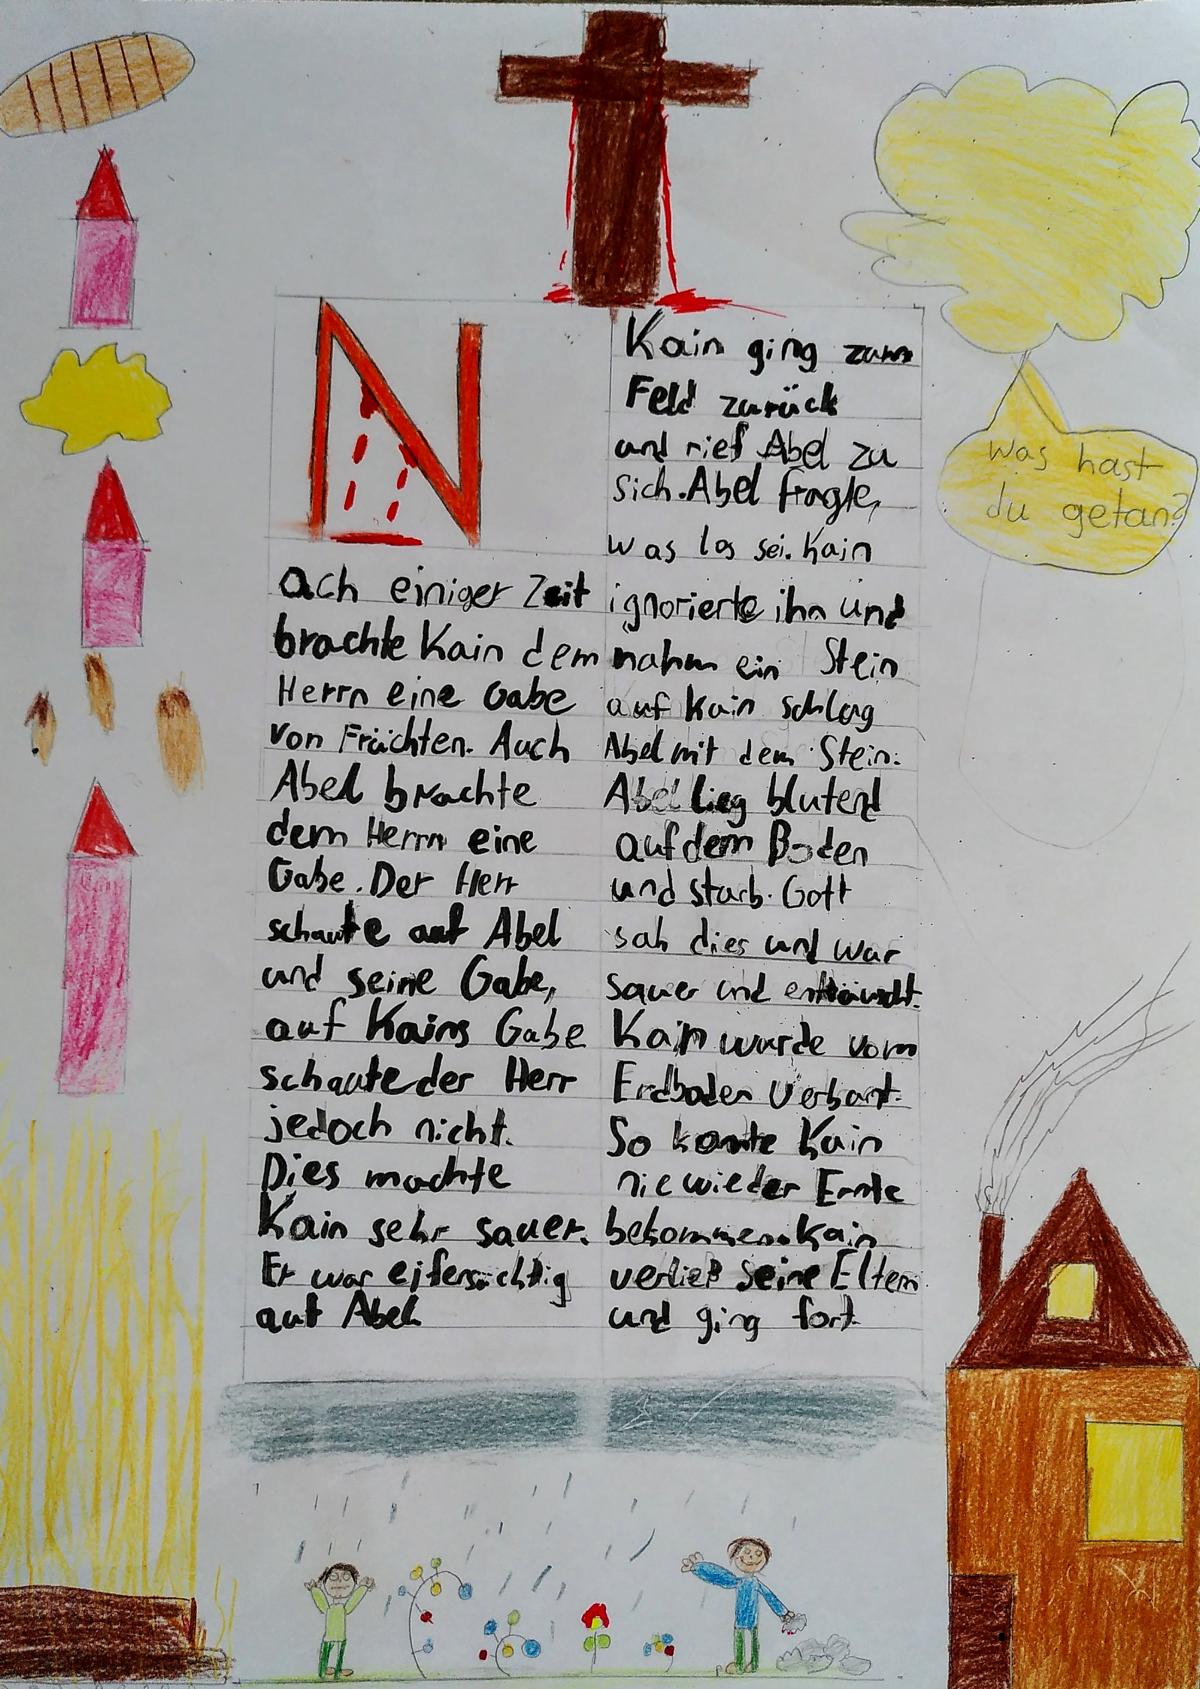 N
ach einiger Zeit
brachte Kain dem
Herrn eine Gabe
von Früchten. Auch
Abel brachte
dem Herrn eine
Gabe. Der Herr
schaute auf Abel
und seine Gabe,
auf Kains Gabe
schaute der Herr
jedoch nicht.
Dies machte
Kain sehr sauer.
Er war eifersüchtig
auf Abel.
Kain ging zum
Feld zurück
und rief Abel zu
sich. Abel fragte,
was los sei. Kain
ignorierte ihn und
nahm ein Stein
auf Kain schlag
Abel mit dem Stein.
Abel lieg blutend
auf dem Boden
und starb. Gott
sah dies und war
sauer und enttäuscht.
Kain wurde vom
Erdboden verbant.
So konnte Kain
nie wieder Ernte
bekommen. Kain
verließ seine Eltern
und ging fort.
Was hast
du getan?